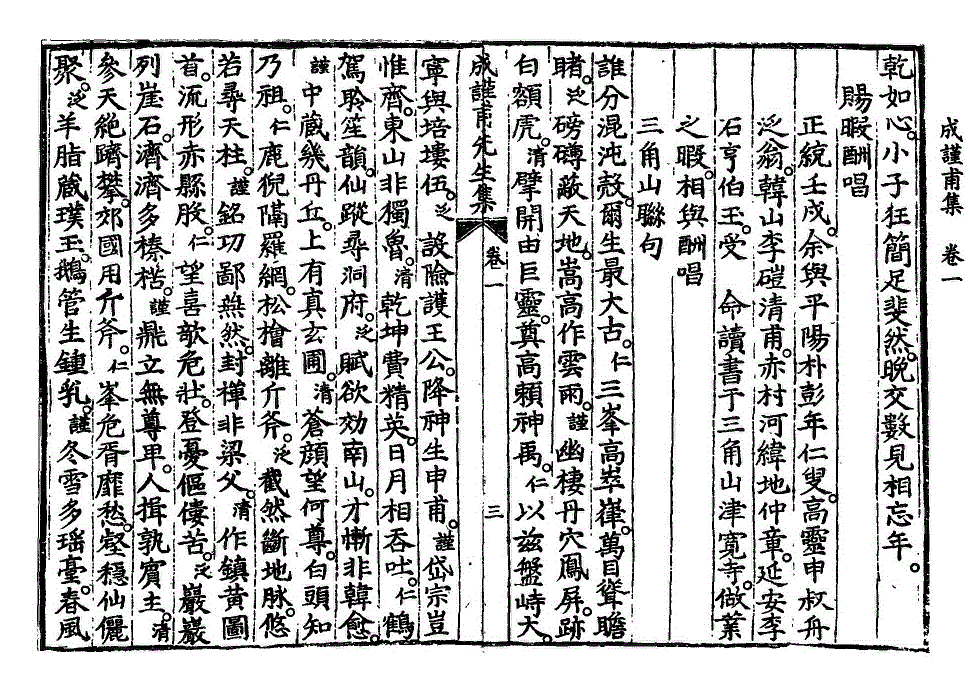 成謹甫集　卷一
乾如心。小子狂簡足斐然。晩交數見相忘年。
賜暇酬唱
正統壬戌。余與平陽朴彭年仁叟。高靈申叔舟
泛翁。韓山李塏清甫。赤村河緯地仲章。延安李
石亨伯玉。受　命讀書于三角山津寬寺。做業
之暇。相與酬唱
三角山聯句
誰分混沌殼。爾生最大古。仁 三峯高崒嵂。萬目聳瞻
睹。泛 磅礴敵天地。嵩高作雲雨。謹 幽棲丹穴鳳。屏跡
白額虎。清 擘開由巨靈。奠高賴神禹。仁 以玆盤峙大。
成謹甫先生集　卷一　三
寧與培塿伍。泛 設險護王公。降神生申甫。謹 岱宗豈
惟齊。東山非獨魯。清 乾坤費精英。日月相吞吐。仁 鶴
駕聆笙韻。仙蹤尋洞府。泛 賦欲効南山。才慚非韓愈。
謹 中藏幾丹丘。上有眞玄圃。清 蒼顔望何尊。白頭知
乃祖。仁 鹿猊隔羅網。松檜離斤斧。泛 截然斷地脉。悠
若尋天柱。謹 銘功鄙燕然。封禪非梁父。清 作鎭黃圖
首。流形赤縣股。仁 望喜欹危壯。登憂傴僂苦。泛 巖巖
列崖石。濟濟多榛楛。謹 鼎立無尊卑。人揖孰賓主。清
參天絶躋攀。郊國用斤斧。仁 峯危胥靡愁。壑穩仙儷
聚。泛 羊脂藏璞玉。鵝管生鍾乳。謹 冬雪多瑤臺。春風